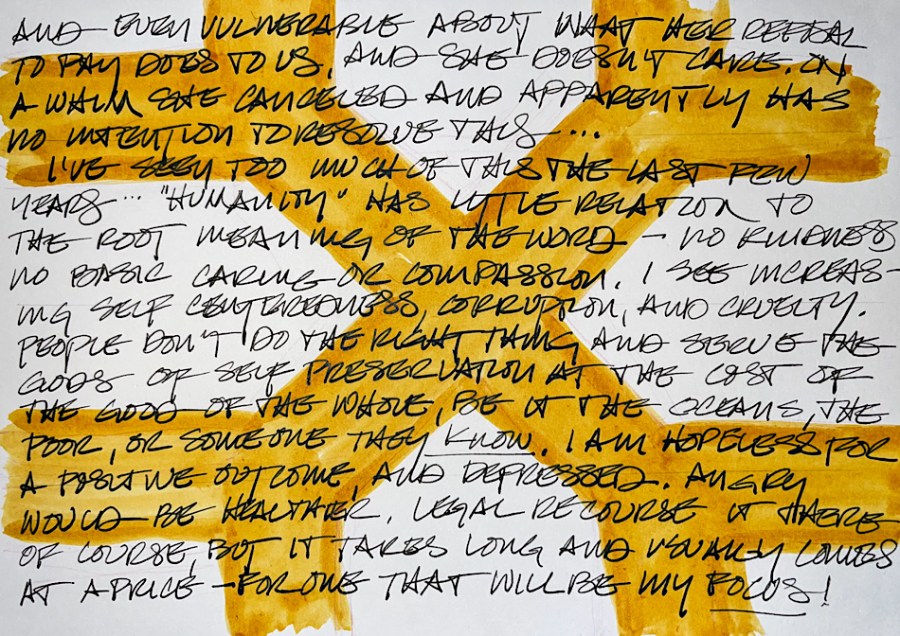 AND EVEN VULNERABLE ABOUT WHAT HER REFUSAL
TO PAY DOES TO US, AND SHE DOESN'T CARE. ON
A WHIM SHE CANCELED AND APPARENTLY HAS
NO INTENTION TO RESOLVE THIS ...
I'VE SEEN TOO MUCH OF THIS THE LAST FEW
YEARS ... "HUMANITY" HAS LITTLE RELATION TO
THE ROOT MEANING OF THE WORD - NO KINDNESS
NO BASIC CARING OR COMPASSION. I SEE INCREAS-
ING SELF CENTEREDNESS, CORRUPTION, AND CRUELTY.
PEOPLE DON'T DO THE RIGHT THING AND SERVE THE
GODS OF SELF PRESERVATION AT THE COST OF
THE GOOD OF THE WHOLE, BE IT THE OCEANS, THE
POOR, OR SOMEONE THEY KNOW. I AM HOPELESS FOR
A POSITIVE OUTCOME, AND DEPRESSED. ANGRY
WOULD BE HEALTHIER. LEGAL RECOURSE IS THERE
OF COURSE, BUT IT TAKES LONG AND USUALLY COMES
AT A PRICE - FOR ONE THAT WILL BE MY FOCUS!